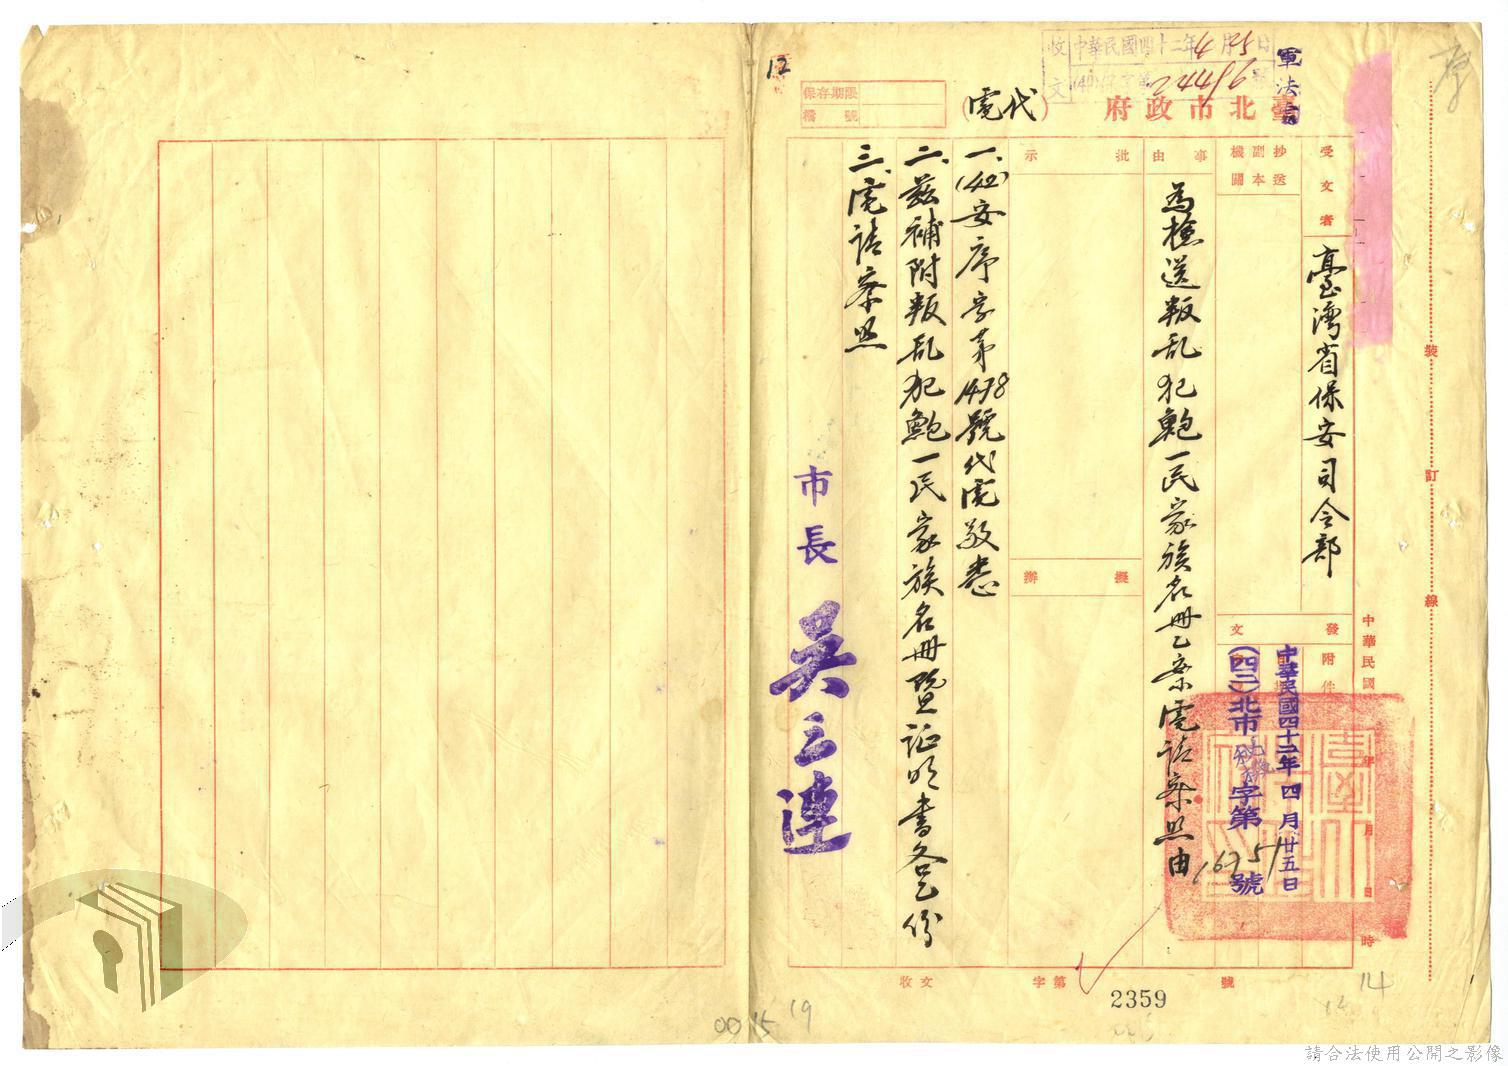 軍法
收文
中華民國四十二年4月25日
臺北市政府
(電代)
保存期限
檔號
12
受文者
臺灣省保安司令部
抄送副本機關
事由
為檢送叛乱犯鮑一民家族名冊乙案電請察照由
批示
擬辦
發文
附件
中華民國 年 月 日 時
中華民國四十二年四月廿五日
(四二)北市 字第 號
一、(42)安序字第1478號代電敬悉
二、茲補附叛乱犯鮑一民家族名冊暨証明書各乙份
三、電請察照
市長 吳三連
裝訂線
收文 字第 號
2359
14
0015
19
請合法使用公開之影像